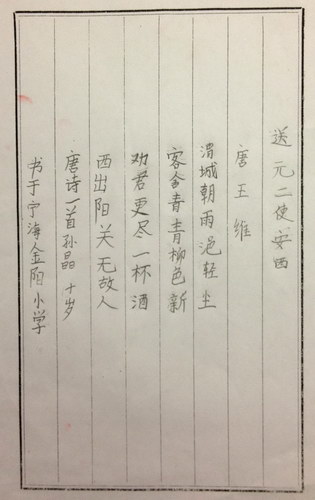 送元二使安西
唐王维
渭城朝雨浥轻尘
客舍青青柳色新
劝君更尽一杯酒
西出阳关无故人
唐诗一首孙晶十岁
书于宁海金阳小学